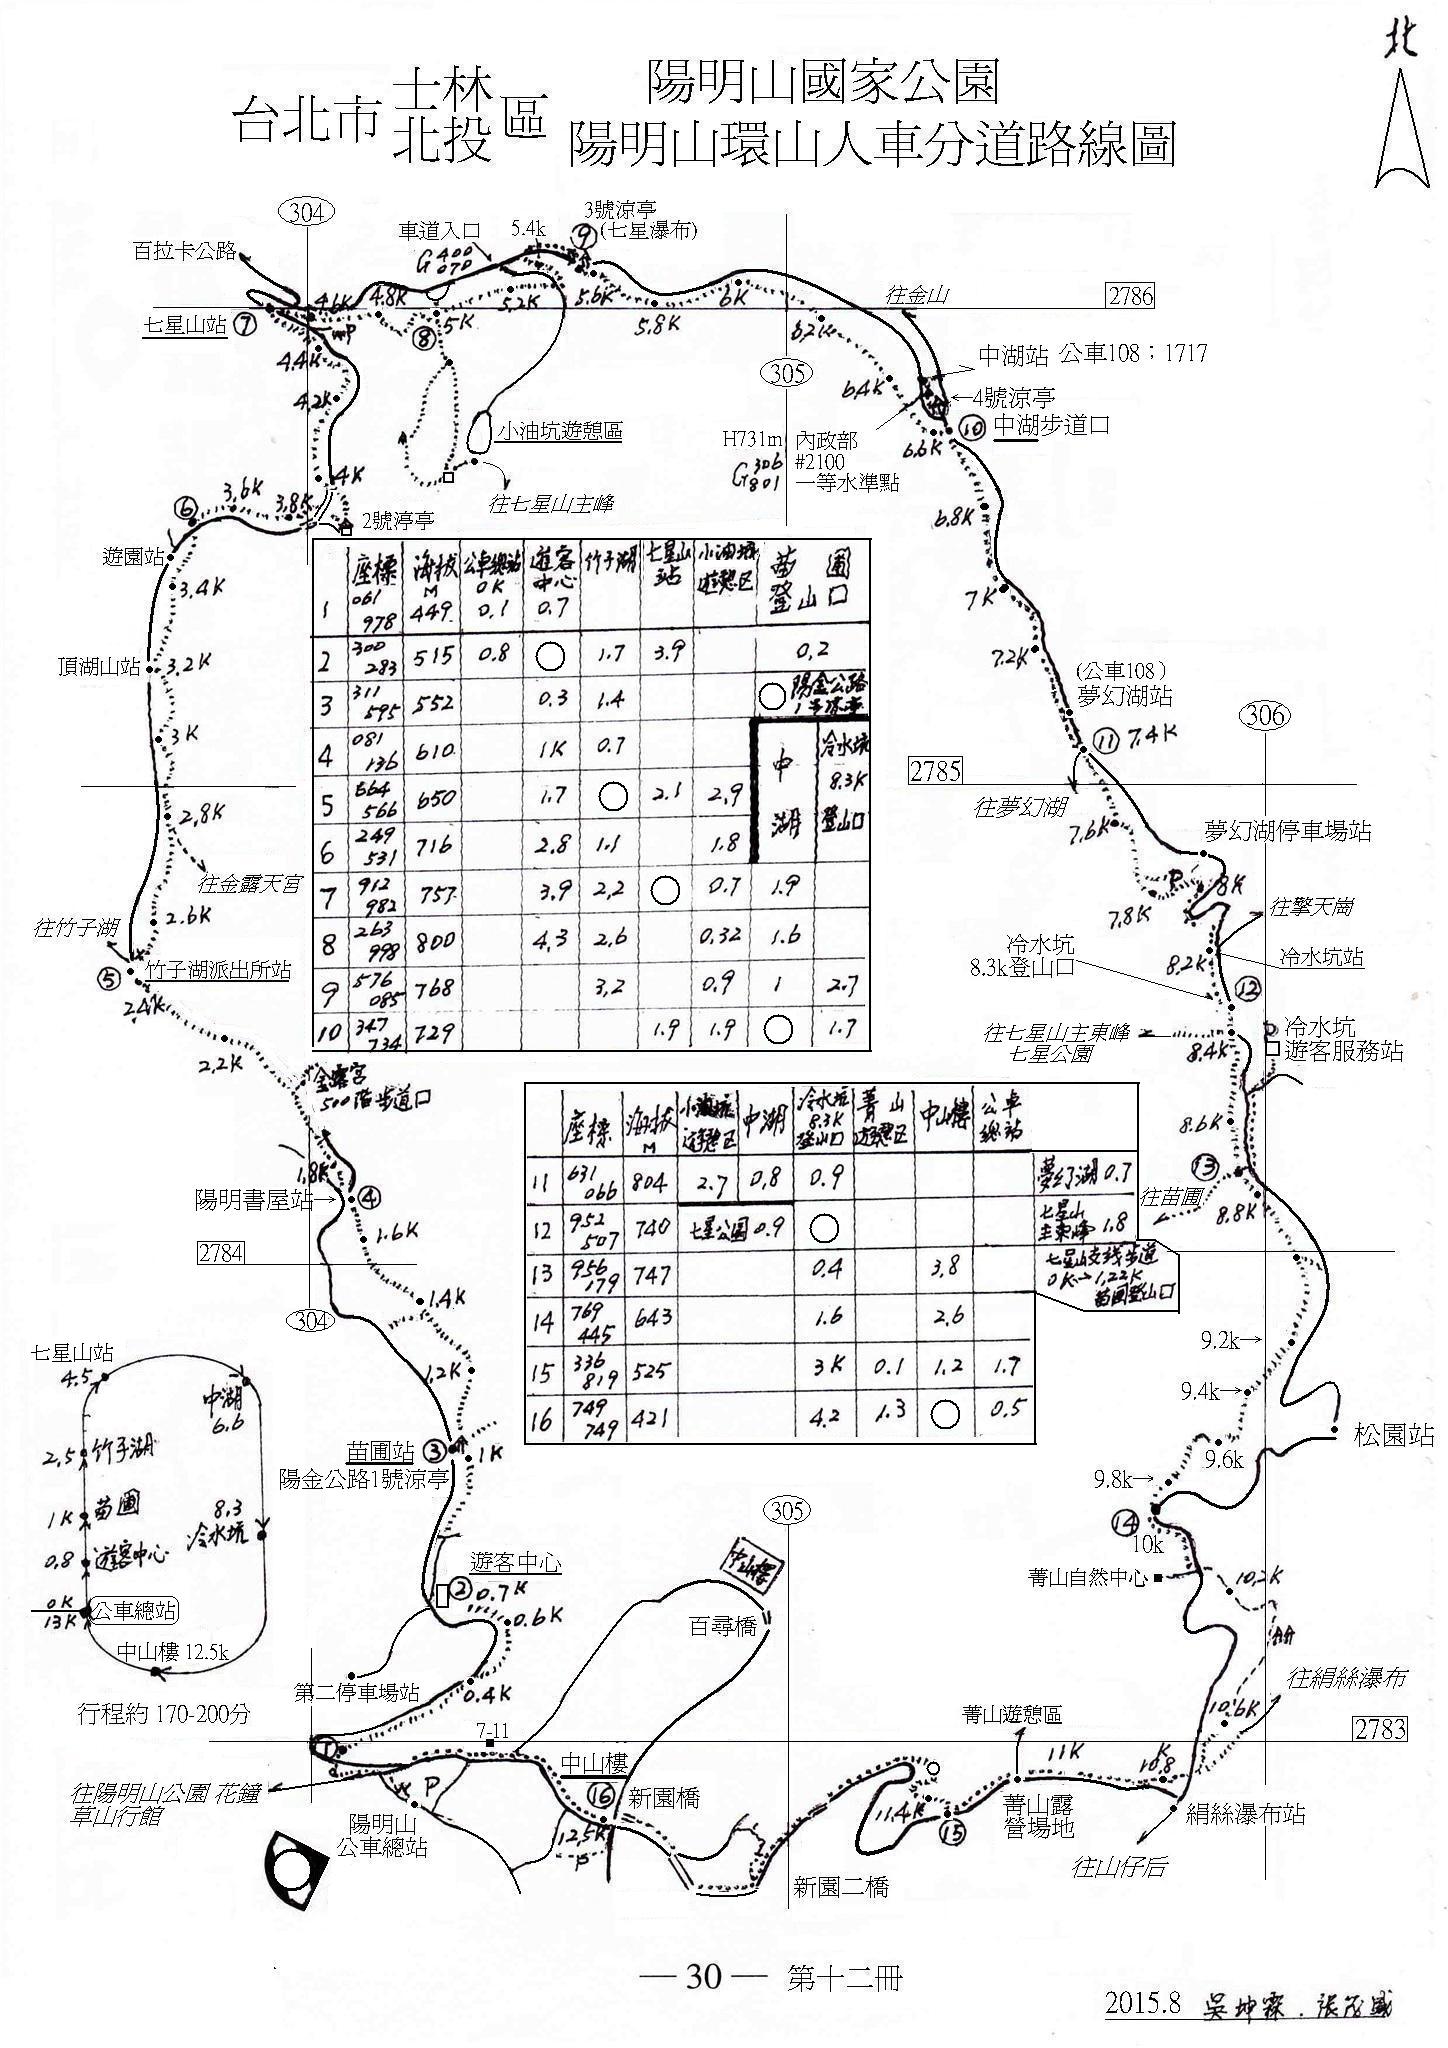 北
台北市 士林 北投 區
陽明山國家公園
陽明山環山人車分道路線圖
304
百拉卡公路
車道入口
G 400 070
5.4k
3號涼亭
⑨ (七星瀑布)
往金山
2786
4.6K
4.8K
5K
5.2K
5.6K
5.8K
6K
6.2K
七星山站 ⑦
P
⑧
4.4K
4.2K
305
中湖站 公車108；1717
6.4K
←4號涼亭
⑩ 中湖步道口
小油坑遊憩區
H731m
內政部
#2100
一等水準點
G 306 801
6.6K
往七星山主峰
4K
⑥
3.6K
3.8K
2號渟亭
6.8K
遊園站
3.4K
7K
頂湖山站
3.2K
7.2K
(公車108)
夢幻湖站
306
3K
⑪ 7.4K
2785
往夢幻湖
2.8K
7.6K
夢幻湖停車場站
往金露天宮
P
8K
2.6K
7.8K
往擎天崗
往竹子湖
⑤ 竹子湖派出所站
冷水坑
8.3k登山口
8.2K
冷水坑站
2.4K
⑫
往七星山主東峰
七星公園
8.4K
冷水坑
遊客服務站
2.2K
金露宮
500階步道口
座標 海拔M 公車總站0K 遊客中心 竹子湖 七星山站 小油坑遊憩区 苗圃登山口
1 061 978 449 0.1 0.7
2 300 283 515 0.8 ○ 1.7 3.9 0.2
3 311 595 552 0.3 1.4 ○ 陽金公路
4 081 136 610 1K 0.7 中湖 冷水坑 8.3K 登山口
5 664 566 650 1.7 ○ 2.1 2.9
6 249 531 716 2.8 1.1 1.8
7 912 982 757 3.9 2.2 ○ 0.7 1.9
8 263 998 800 4.3 2.6 0.32 1.6
9 576 085 768 3.2 0.9 1 2.7
10 347 734 729 1.9 1.9 ○ 1.7
座標 海拔M 小油坑遊憩区 中湖 冷水坑8.3K登山口 菁山遊憩区 中山樓 公車總站
11 631 066 804 2.7 0.8 0.9 夢幻湖 0.7
12 952 507 740 七星公園 0.9 ○ 七星山主東峰 1.8
13 956 179 747 0.4 3.8 七星山支线步道 0K→1.22K 苗圃登山口
14 769 445 643 1.6 2.6
15 336 819 525 3K 0.1 1.2 1.7
16 749 749 421 4.2 1.3 ○ 0.5
8.6K
1.8K
⑬
陽明書屋站→ ④
往苗圃
8.8K
1.6K
2784
1.4K
304
9.2k→
1.2K
9.4k→
松園站
9.6k
苗圃站 ③
1K
陽金公路1號涼亭
9.8k→
305
⑭
10k
菁山自然中心
10.2K
七星山站
4.5
中湖
6.6
2.5 竹子湖
1K 苗圃
8.3
冷水坑
0.8 遊客中心
0K
13K
公車總站
中山樓 12.5k
行程約 170-200分
遊客中心
② 0.7K
0.6K
中山樓
百尋橋
第二停車場站
0.4K
往絹絲瀑布
10.6K
7-11
菁山遊憩區
2783
①
中山樓
11K
10.8K
往陽明山公園 花鐘
草山行館
P
⑯ 新園橋
11.4K
菁山露
營場地
絹絲瀑布站
陽明山
公車總站
12.5K
P
⑮
往山仔后
新園二橋
— 30 — 第十二冊
2015.8 吳坤霖．張茂盛